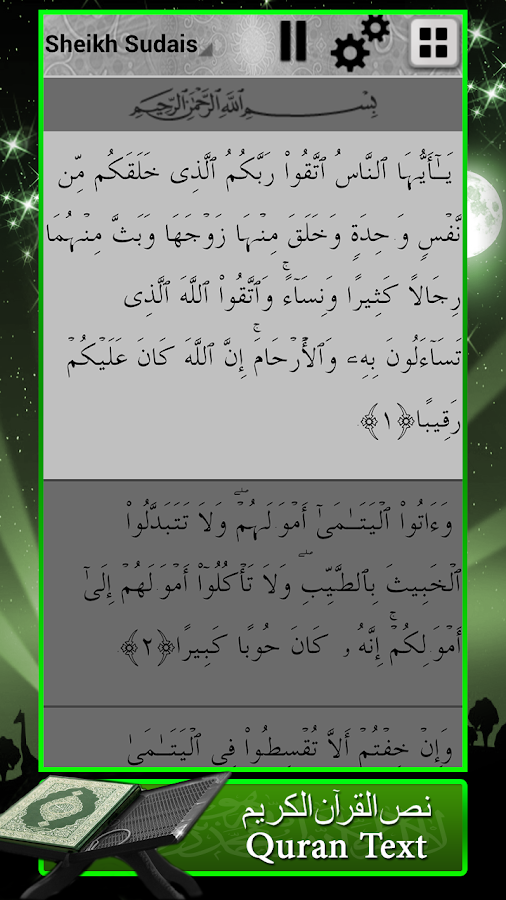 Sheikh Sudais
بِسْمِ ٱللَّهِ ٱلرَّحْمَٰنِ ٱلرَّحِيمِ
يَـٰٓأَيُّهَا ٱلنَّاسُ ٱتَّقُوا۟ رَبَّكُمُ ٱلَّذِى خَلَقَكُم مِّن
نَّفْسٍ وَ حِدَةٍ وَخَلَقَ مِنْهَا زَوْجَهَا وَبَثَّ مِنْهُمَا
رِجَالاً كَثِيرًا وَنِسَآءً ۚ وَٱتَّقُوا۟ ٱللَّهَ ٱلَّذِى
تَسَآءَلُونَ بِهِۦ وَٱلْأَرْحَامَ ۚ إِنَّ ٱللَّهَ كَانَ عَلَيْكُمْ
رَقِيبًا ﴿١﴾
وَءَاتُوا۟ ٱلْيَتَـٰمَىٰٓ أَمْوَ لَهُمْ ۖ وَلَا تَتَبَدَّلُوا۟
ٱلْخَبِيثَ بِٱلطَّيِّبِ ۖ وَلَا تَأْكُلُوٓا۟ أَمْوَ لَهُمْ إِلَىٰٓ
أَمْوَ لِكُمْ ۚ إِنَّهُ ۥ كَانَ حُوبًا كَبِيرًا ﴿٢﴾
وَإِنْ خِفْتُمْ أَلَّا تُقْسِطُوا۟ فِى ٱلْيَتَـٰمَىٰ
نص القرآن الكريم
Quran Text